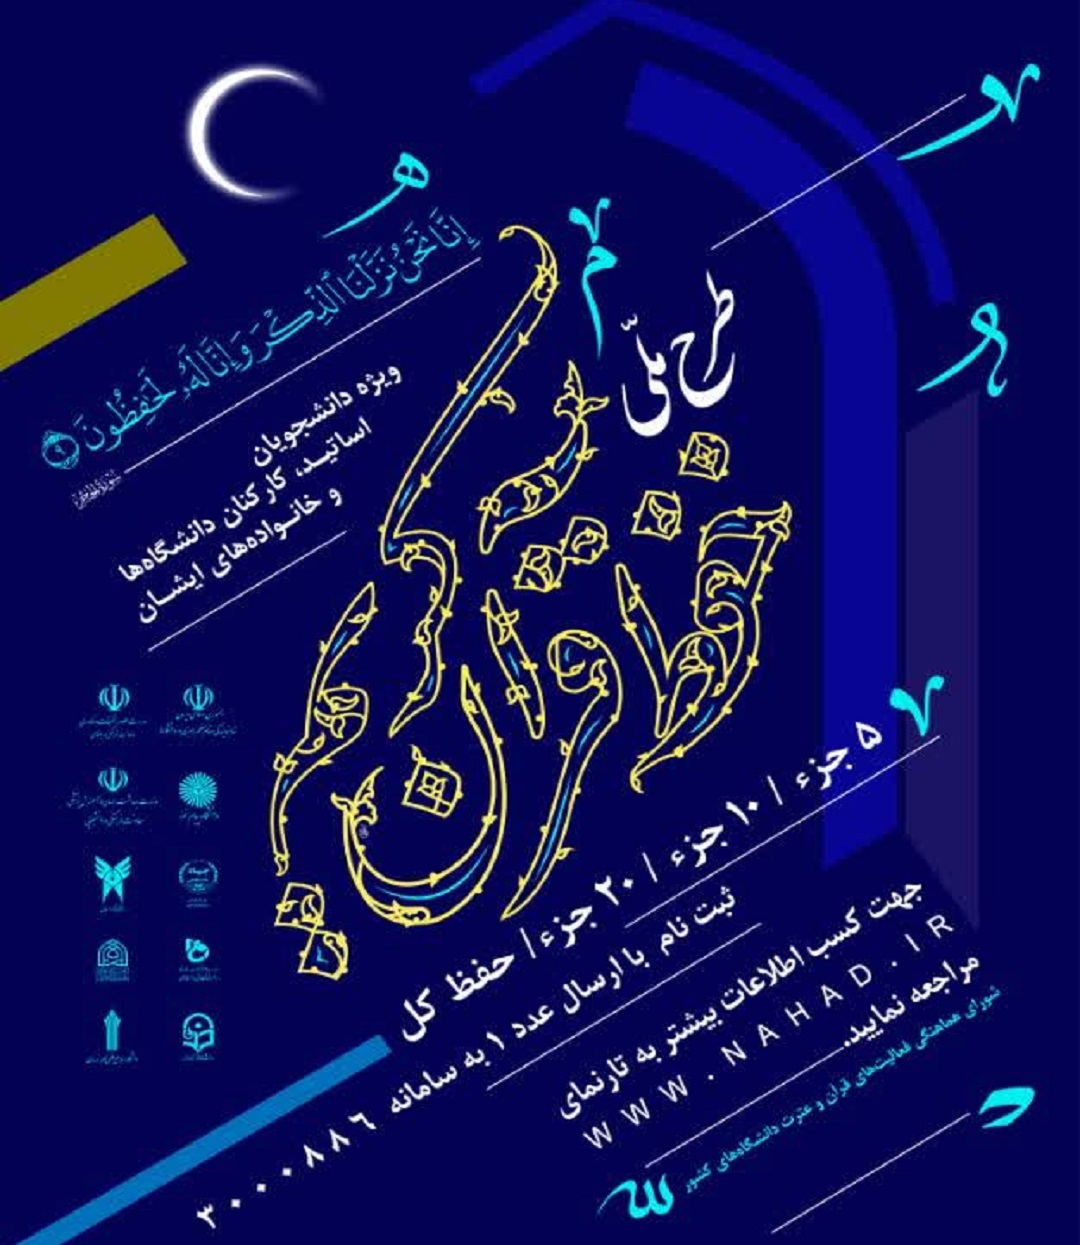 إِنَّا نَحْنُ نَزَّلْنَا ٱلذِّكْرَ وَإِنَّا لَهُۥ لَحَٰفِظُونَ ۹
ویژه دانشجویان
اساتید، کارکنان دانشگاه‌ها
و خانواده‌های ایشان
طرح ملّی
حفظ قرآن کریم
۵ جزء / ۱۰ جزء / ۲۰ جزء / حفظ کل
ثبت نام با ارسال عدد ۱ به سامانه ۳۰۰۰۸۸۶
جهت کسب اطلاعات بیشتر به تارنمای
WWW.NAHAD.IR
مراجعه نمایید.
شورای هماهنگی فعالیت‌های قرآن و عترت دانشگاه‌های کشور